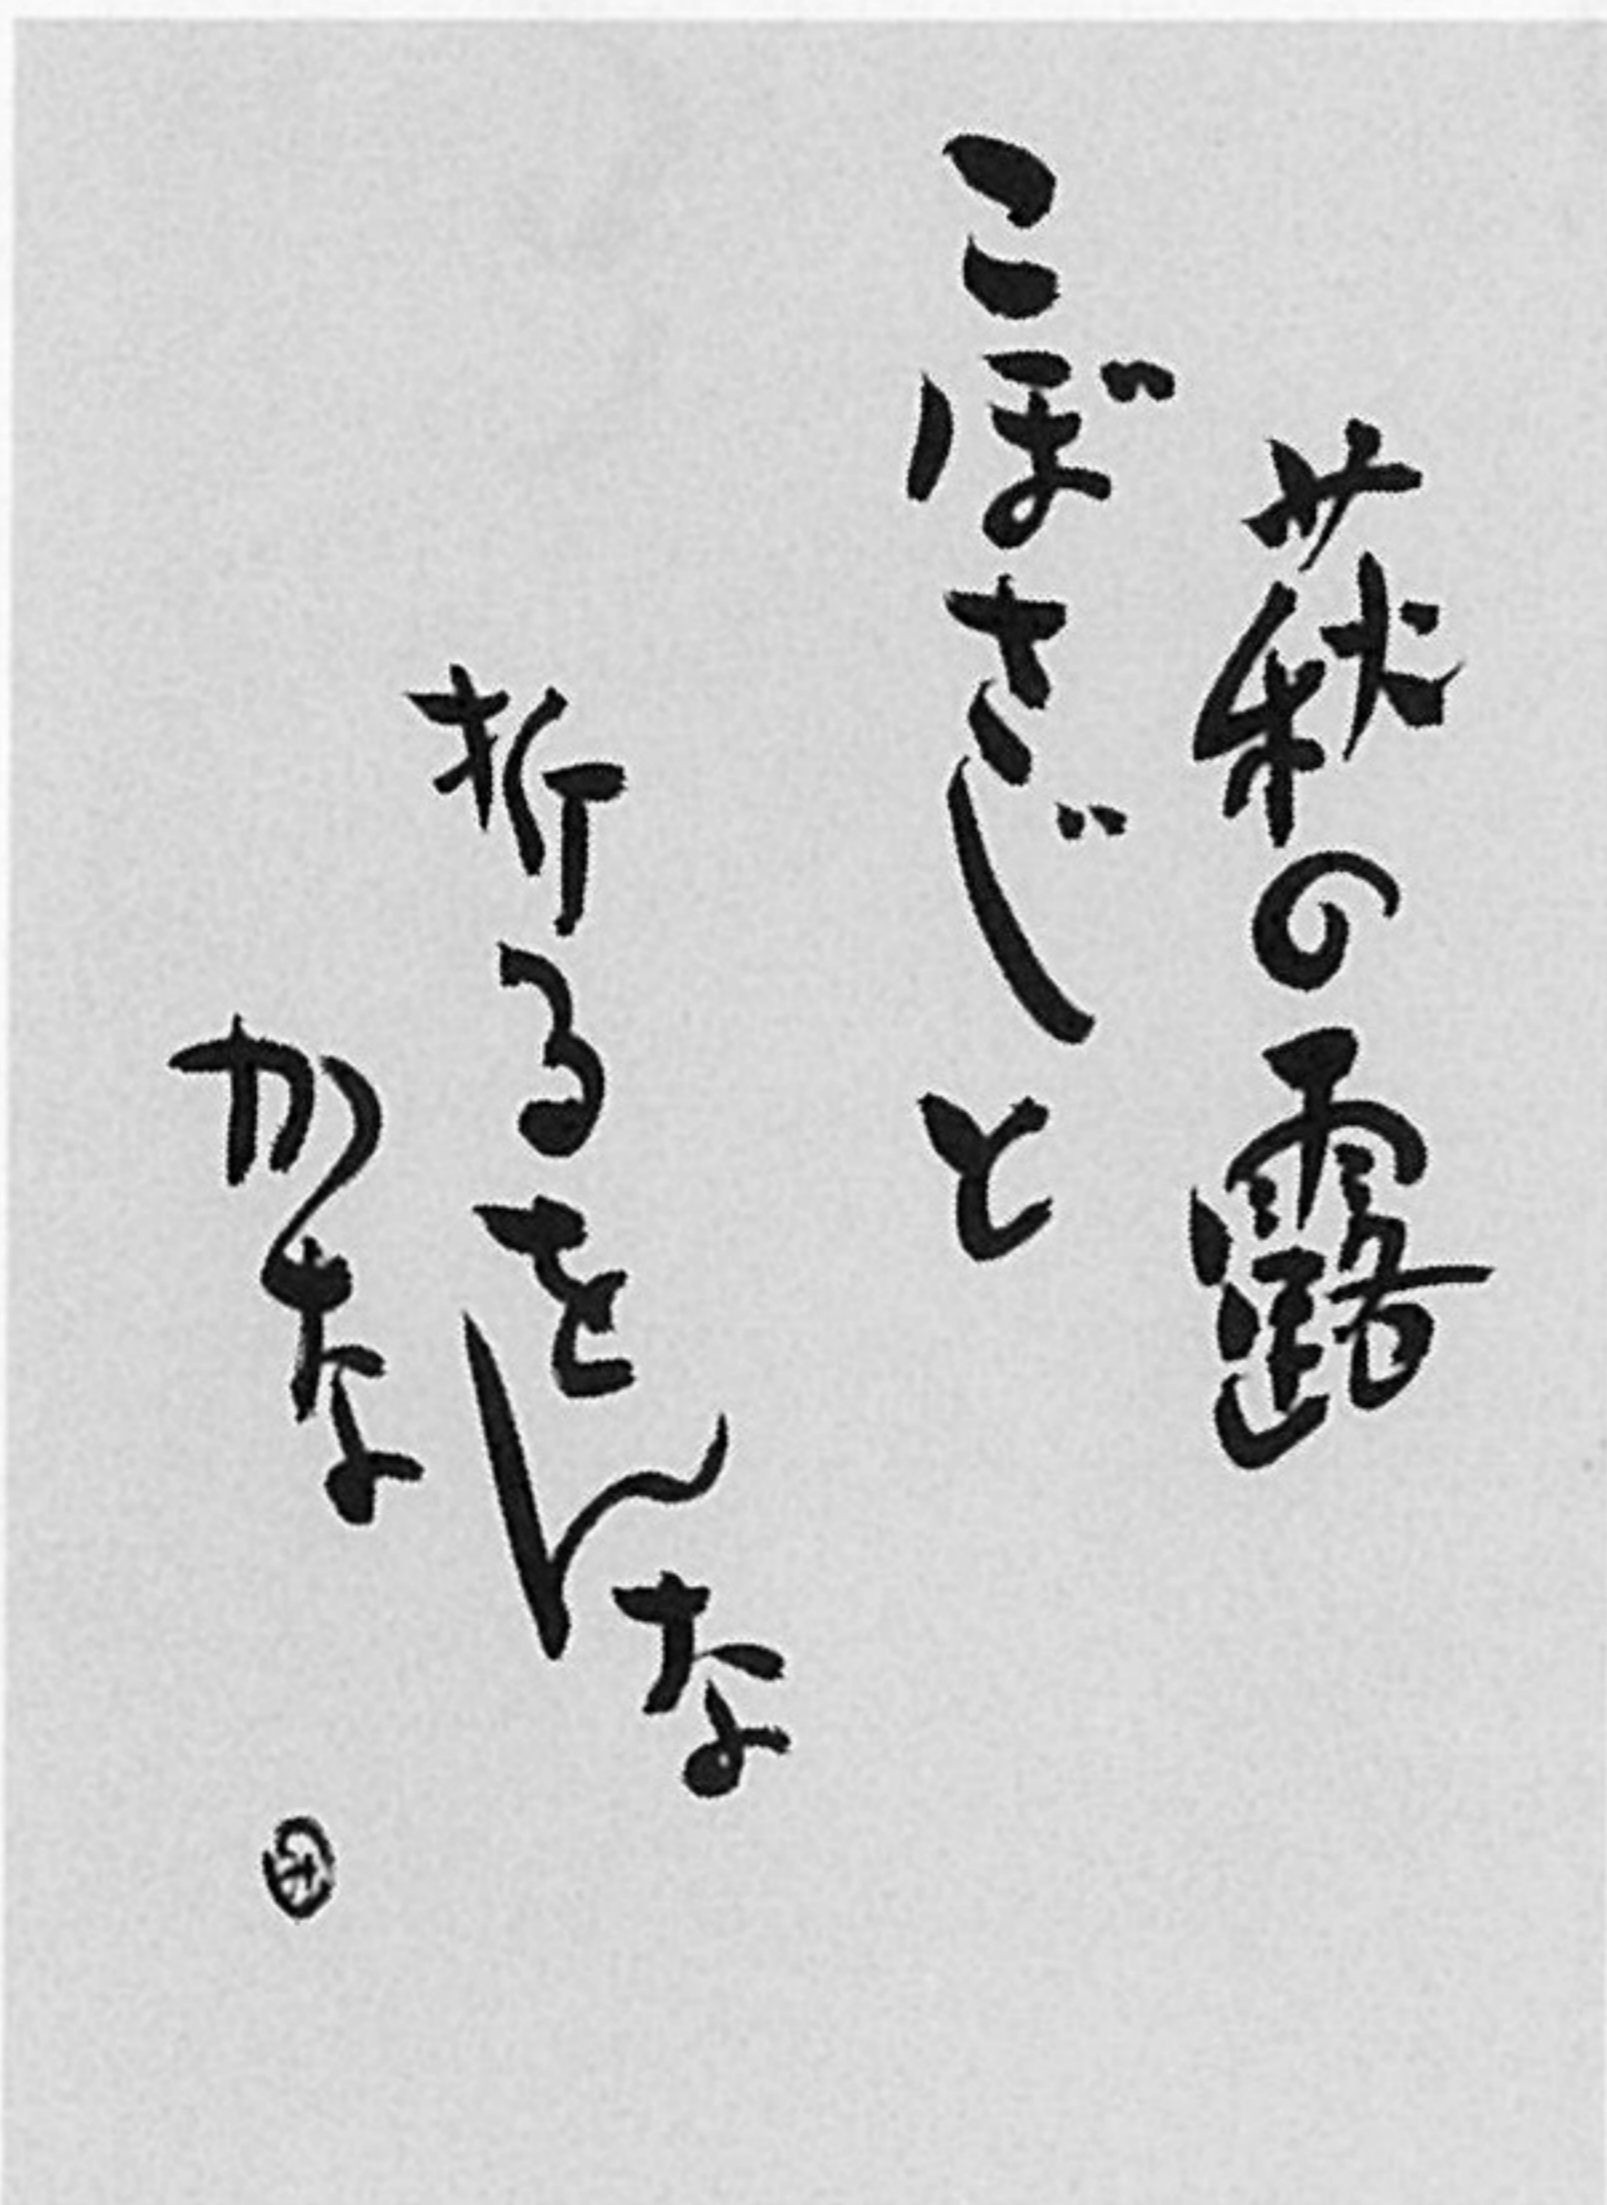 萩の露
こぼさじと
折るをんな
かな